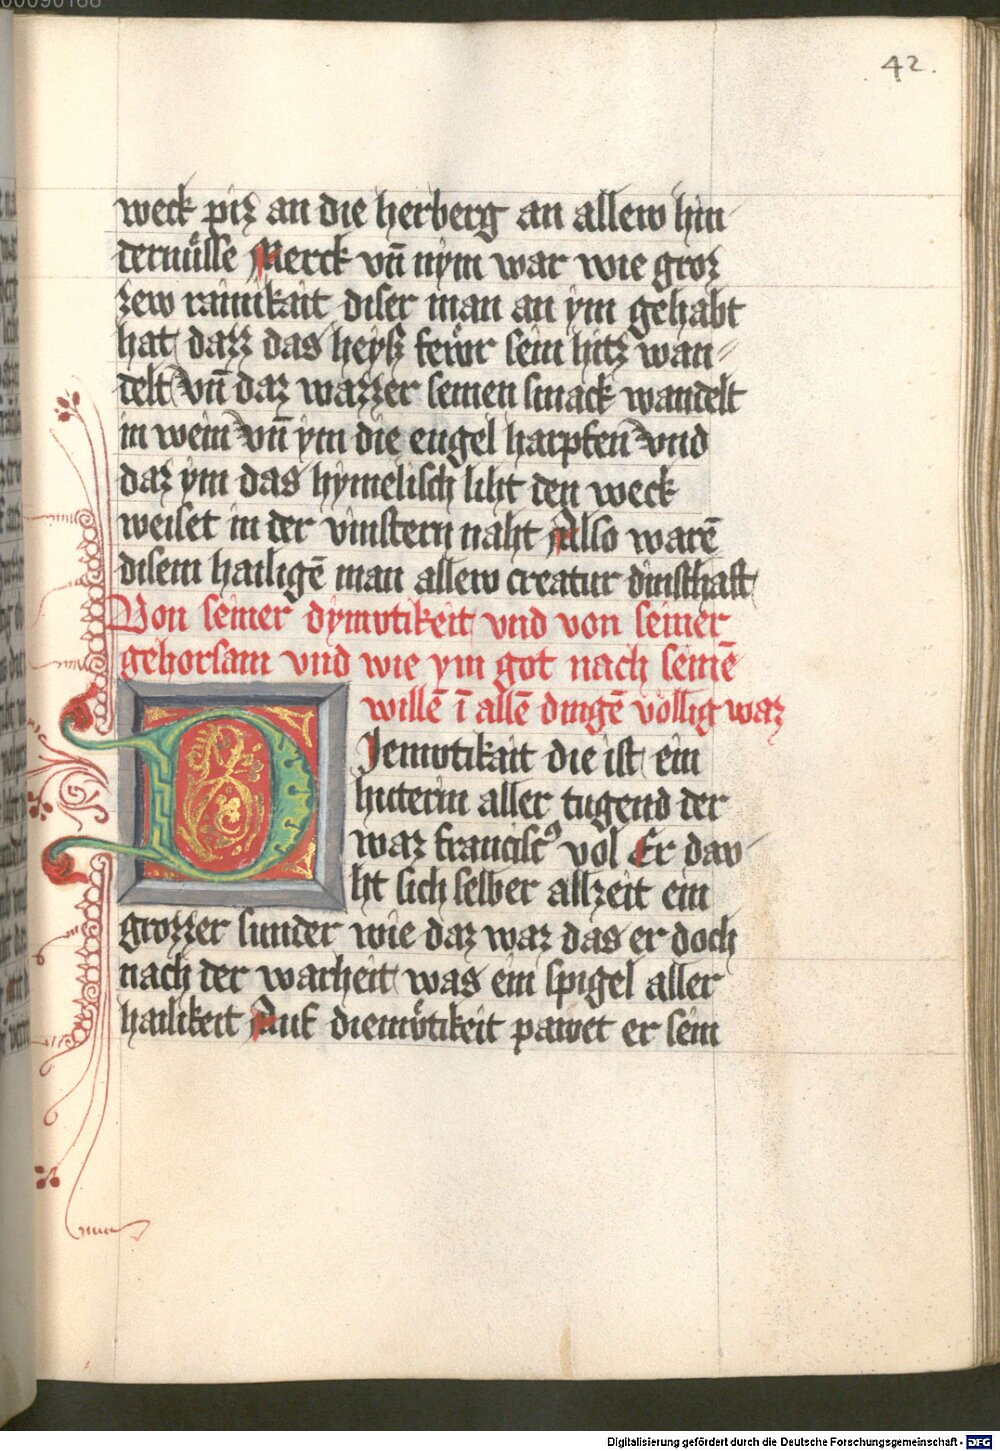 00090168
42.
weck piz an die herberg an allew hin
dernüsse Merck vn̄ nym war wie groz
zew rainikait diser man an ym gehabt
hat dazz das heysz fewr sein hitz wan
delt vn̄ daz wazzer seinen smack wandelt
in wein vn̄ ym die engel harpfen vnd
daz ym das hymelisch liht den weck
weiset in der vinstern naht Also warē
disem hailigē man allew creatur dinsthaft
Von seiner dymvtikeit vnd von seiner
gehorsam vnd wie ym got nach seinē
willē ī allē dingē völlig waz
Diemvtikait die ist ein
huterin aller tugend der
waz francisc⁹ vol Er dau
ht sich selber allzeit ein
grozzer sunder wie daz waz das er doch
nach der warheit was ein spigel aller
hailikeit Auf diemütikeit pawet er sein
Digitalisierung gefördert durch die Deutsche Forschungsgemeinschaft - DFG